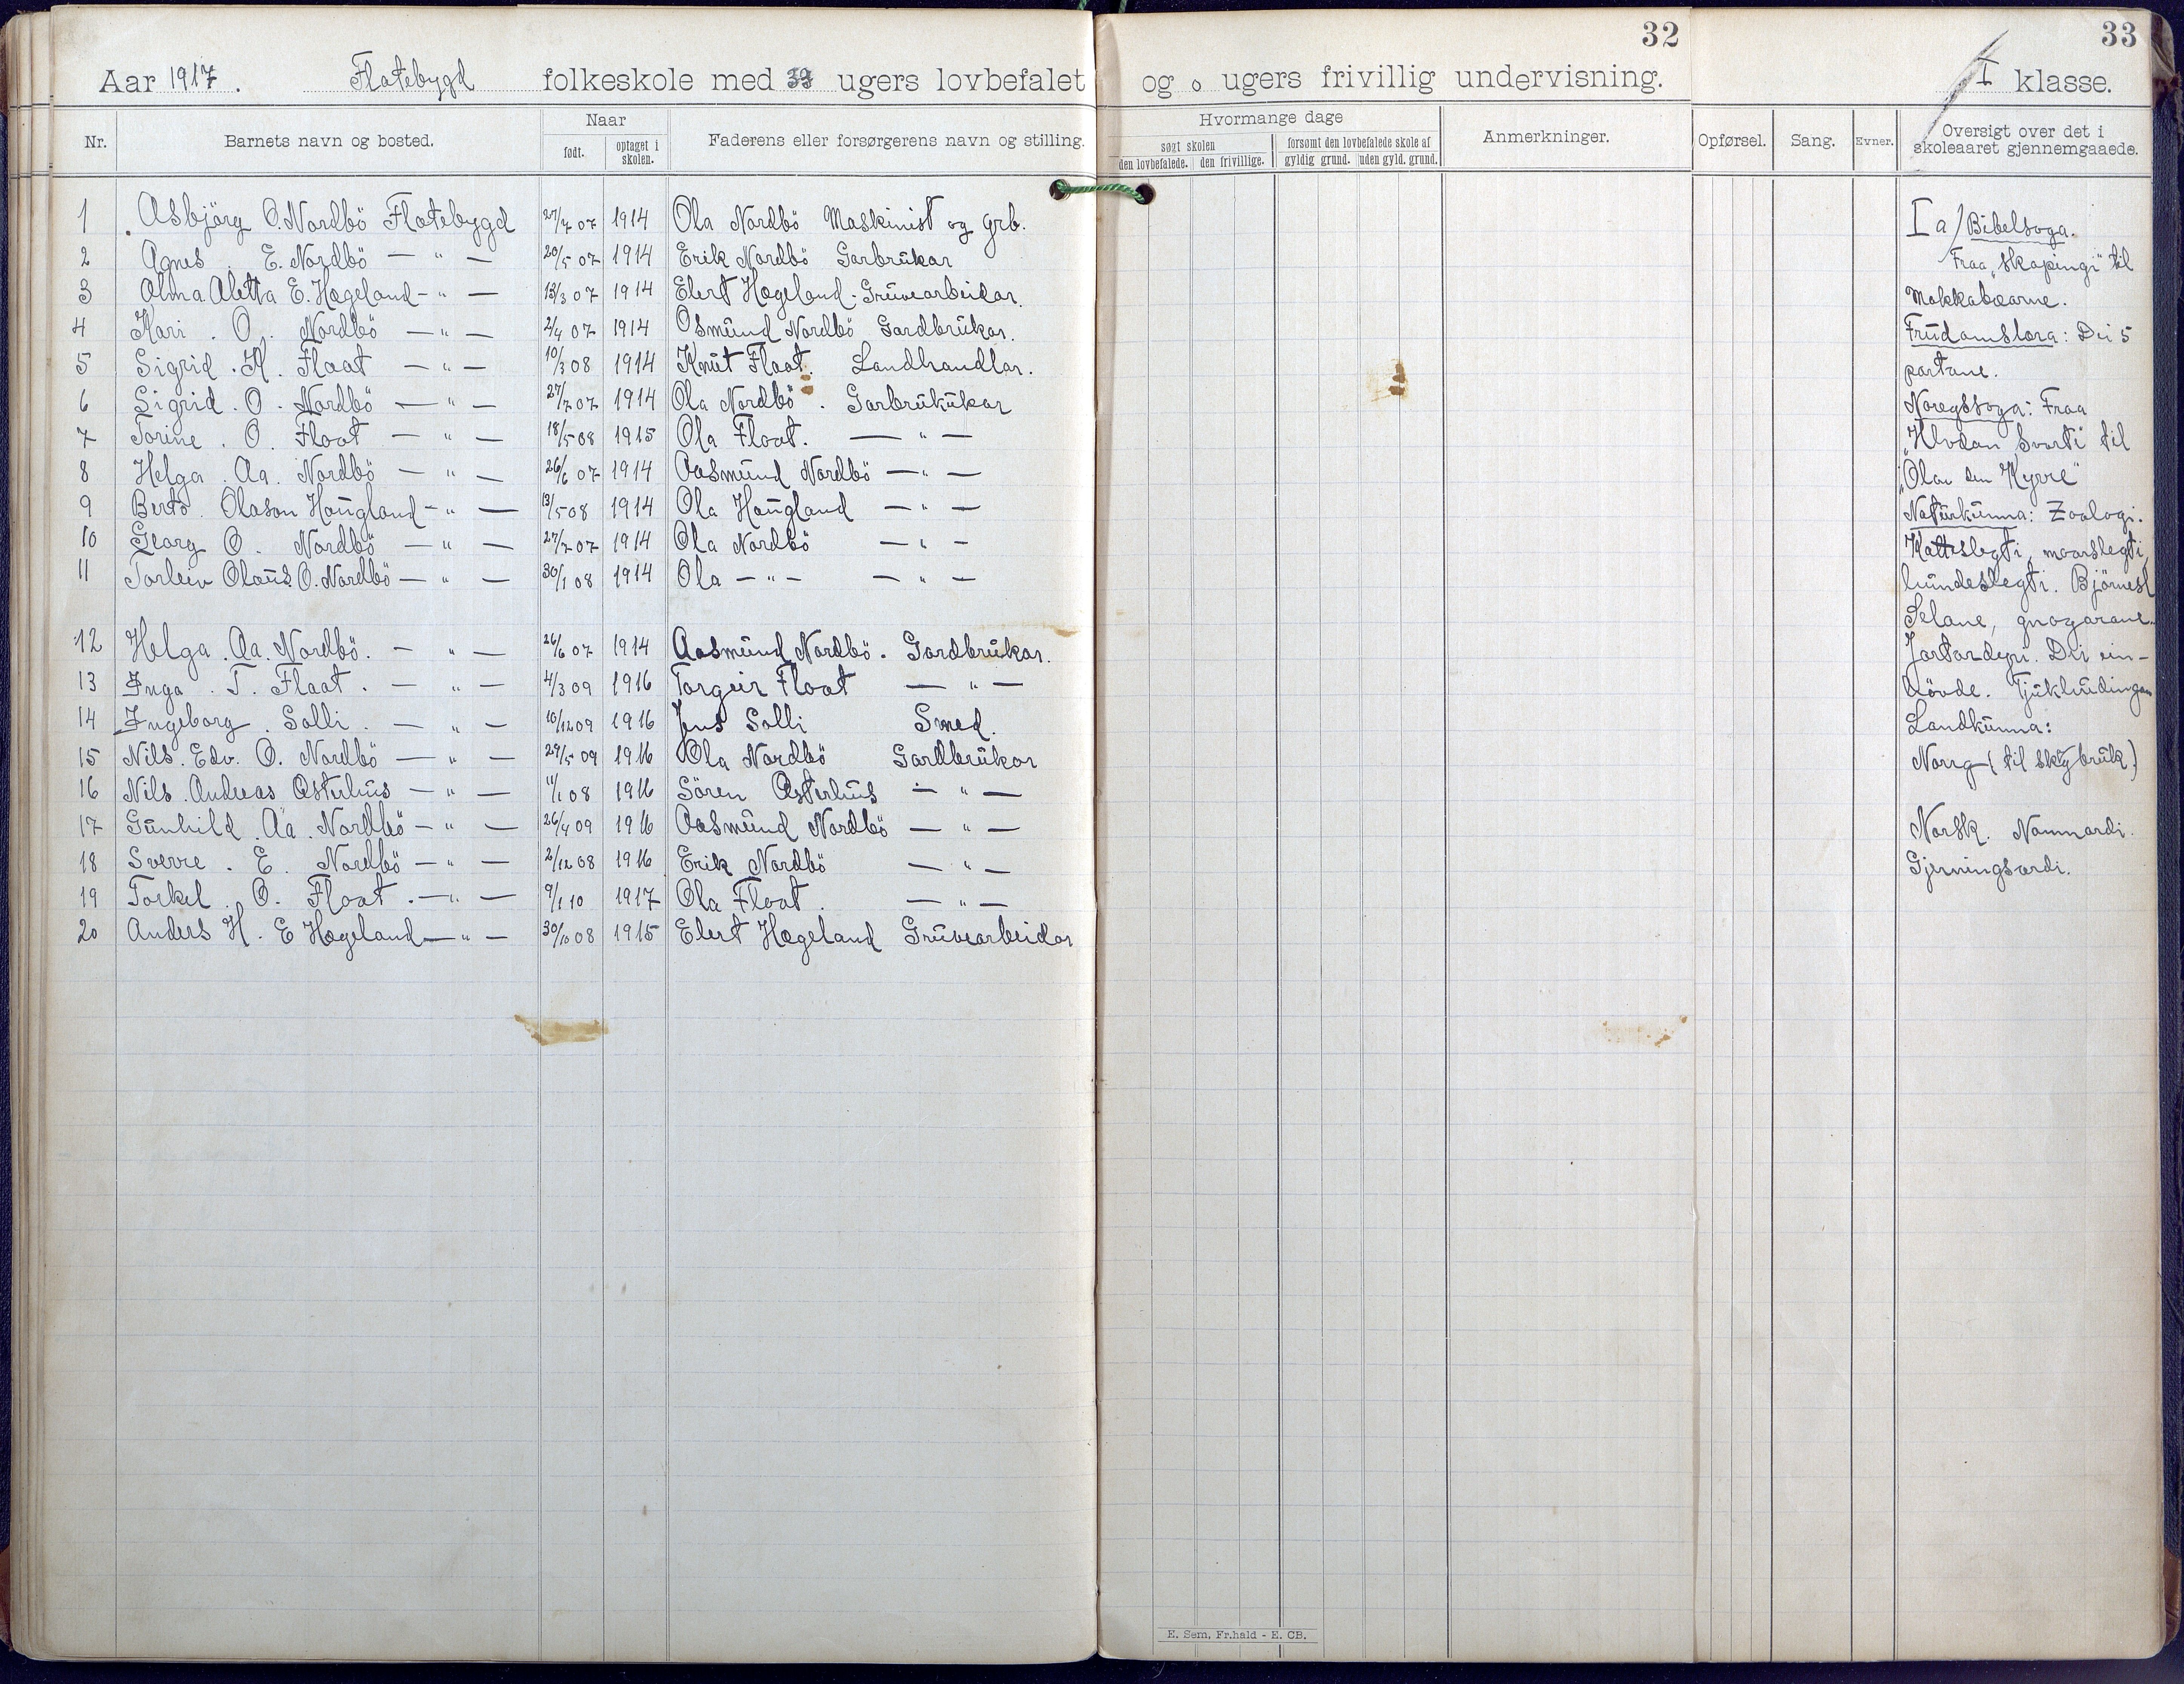 32
33
Aar 1917. Flatebygd folkeskole med ugers lovbefalet og 0 ugers frivillig undervisning. I klasse.
Nr. Barnets navn og bosted. Naar født. optaget i skolen. Faderens eller forsørgerens navn og stilling. Hvormange dage søgt skolen den lovbefalede. den frivillige. forsømt den lovbefalede skole af gyldig grund. uden gyld. grund. Anmerkninger. Opførsel. Sang. Evner. Oversigt over det i skoleaaret gjennemgaaede.
1 Asbjörg O. Nordbö Flatebygd 27/7 07 1914 Ola Nordbö Maskinist og grb.
2 Agnes . E. Nordbö — " — 20/5 07 1914 Erik Nordbö Garbrükar
3 Alma Aletta E. Hægeland - " — 13/3 07 1914 Elert Hægeland - Grüvearbeidar.
4 Kari . O. Nordbö — " — 2/4 07 1914 Osmünd Nordbö Gardbrükar.
5 Sigrid . K. Flaat — " — 10/3 08 1914 Knüt Flaat. Landhandlar.
6 Sigrid . O . Nordbö — " — 27/7 07 1914 Ola Nordbö . Garbrükükar
7 Torine . O . Flaat — " — 18/5 08 1915 Ola Flaat. — " —
8 Helga . Aa. Nordbö — " — 26/6 07 1914 Aasmünd Nordbö — " —
9 Berto . Olason Haügland - " — 13/5 08 1914 Ola Haügland — " —
10 Georg O. Nordbö — " — 27/7 07 1914 Ola Nordbö — " —
11 Torleiv Olaüs O. Nordbö — " — 30/1 08 1914 Ola — " — — " —
12 Helga . Aa. Nordbö. — " — 26/6 07 1914 Aasmünd Nordbö . Gardbrükar.
13 Inga . T. Flaat . — " — 4/3 09 1916 Torgeir Flaat — " —
14 Ingeborg . Solli . — " — 10/12 09 1916 Jens Solli Smed.
15 Nils. Edv. O. Nordbö — " — 29/5 09 1916 Ola Nordbö Gardbrükar
16 Nils . Andreas Østerhüs — " — 11/1 08 1916 Sören Østerhüs — " —
17 Günhild . Aa . Nordbö — " — 26/4 09 1916 Aasmünd Nordbö — " —
18 Sverre . E . Nordbö — " — 2/12 08 1916 Erik Nordbö — " —
19 Torkel . O. Flaat . — " — 9/1 10 1917 Ola Flaat . — " —
20 Anders H. E Hægeland — " — 30/10 08 1915 Elert Hægeland Grüvearbeidar
I a) Bibelsoga.
Fraa „Skapingi" til
Makkabæarne.
Trüdomslæra: Dei 5
partane.
Noregssoga: Fraa
„Hlvdan Svarti til
„Olav den Kyrre"
Natürkünna: Zoologi.
Katteslegti, maarslegti,
hündeslegti. Björnesl
Selane, gnagarane.
Jortardyri. Dei ein-
hövde. Tjükhüdingan
Landkünna:
Norrg ( til skogbrük.)
Norsk. Namnordi.
Gjerningsordi.
E. Sem, Fr.hald - E. CB.